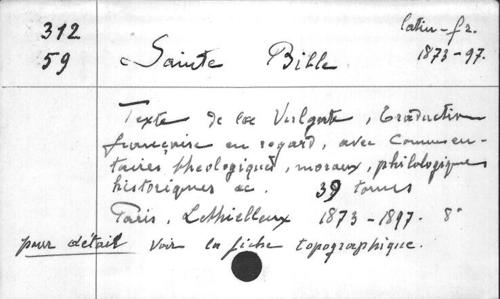 312
59
Sainte Bible
latin-fr.
1873-97.
Texte de la Vulgate, traduction
française en regard, avec commen-
taires théologiques, moraux, philologiques
historiques &c. 39 tomes
Paris, Lethielleux 1873-1897. 8°
pour détail voir la fiche topographique.